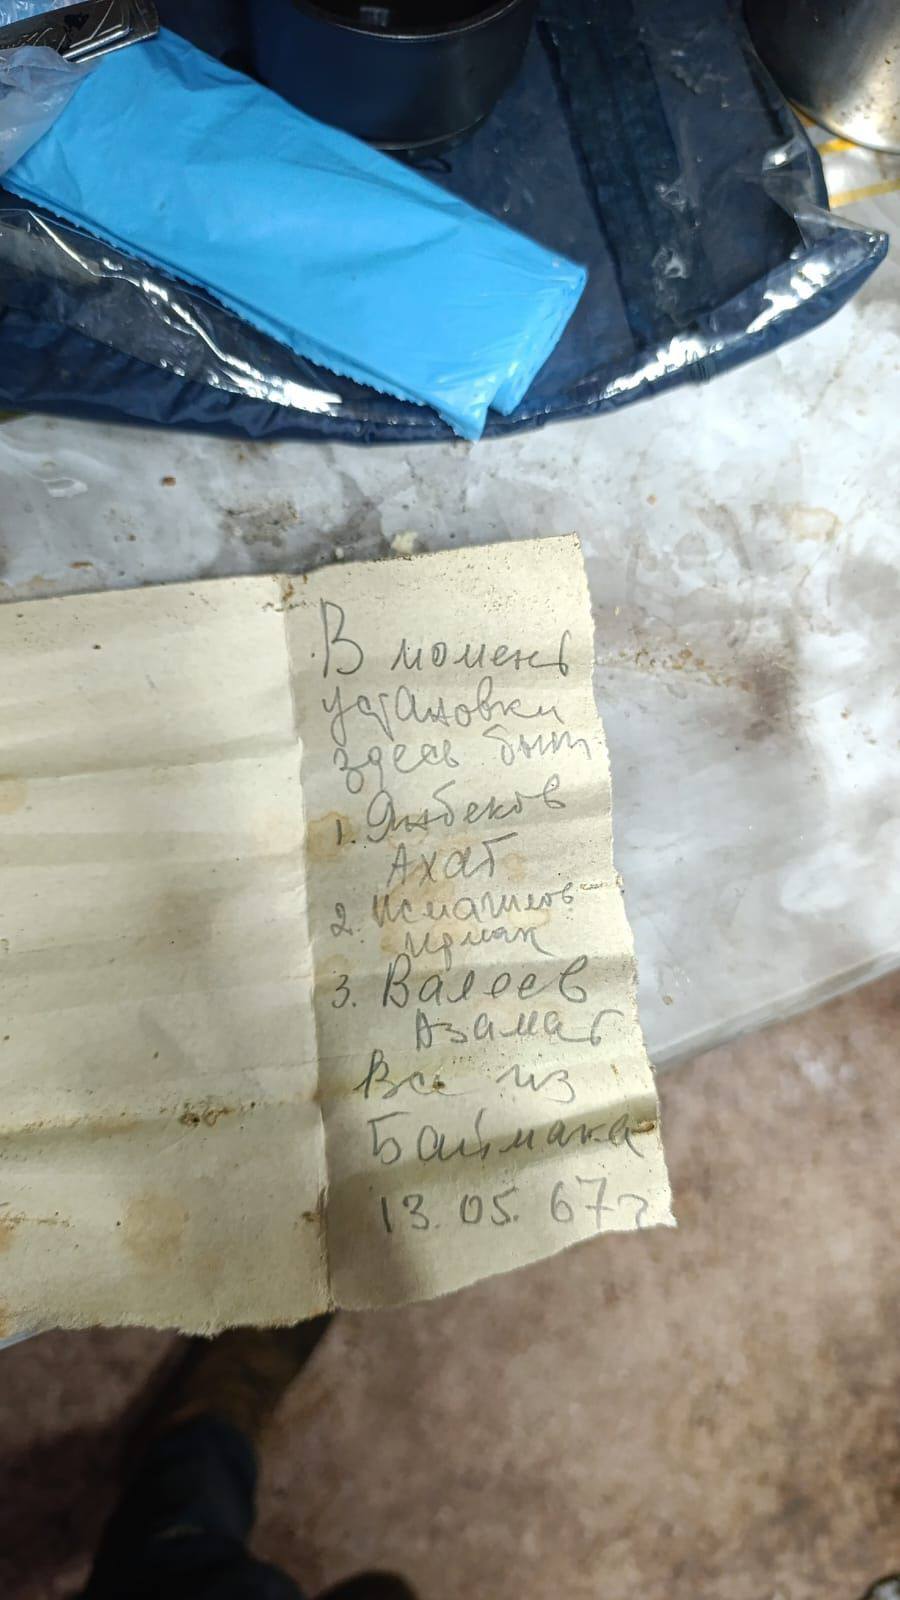 В момент
установки
здесь были
1. Янбеков
Ахат
2. Исмагилов
Ирмак
3. Валеев
Азамат
Все из
Баймака
13.05.67г